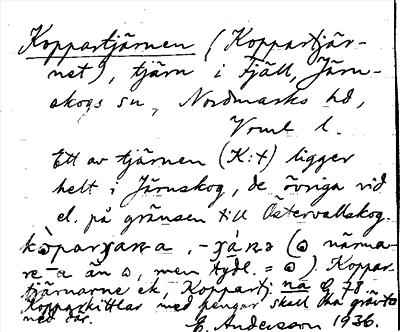 Koppartjärnen (Koppartjär-
net), tjärn i Fjäll, Järn-
skogs sn, Nordmarks hd,
Vrml l.
Ett av tjärnen (K:t) ligger
helt i Järnskog, de övriga vid
el. på gränsen till Östervallskog.
närma-
re a än, men tydl. =. Koppar-
tjärnarne ek, Koppartj. na 78.
Kopparkittlar med pengar skall ha
med där.
E. Andersson 1936.